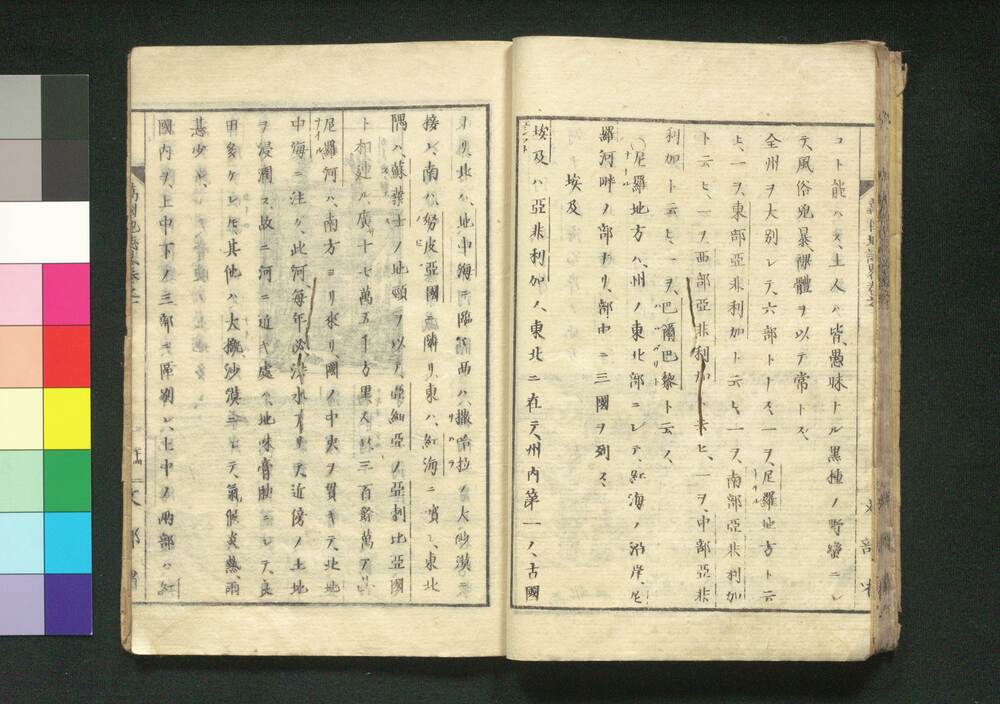 コト能ハズ、土人ハ皆、愚昧ナル黒種ノ野蠻ニシ
テ、風俗兇暴裸體ヲ以テ常トス、
全州ヲ大別シテ、六部トナス、一ヲ、尼羅地方ト云
ヒ、一ヲ、東部亞非利加ト云ヒ、一ヲ、南部亞非利加
ト云ヒ、一ヲ、西部亞非利加ト云ヒ、一ヲ、中部亞非
利加ト云ヒ、一ヲ、巴爾巴黎ト云フ、
尼羅地方ハ、州ノ東北部ニシテ、紅海ノ沿岸、尼
羅河畔ノ部ナリ、部中ニ三國ヲ列ス、
埃及
埃及ハ亞非利加ノ、東北ニ在テ、州内第一ノ、古國
ナリ、北ハ、地中海ニ臨ミ、西ハ、撒哈拉ノ大沙漠ニ
接シ、南ハ、努皮亞國ニ隣リ、東ハ、紅海ニ濱シ、東北
隅ハ、蘇葉士ノ地頸ヲ以テ、亞細亞ノ亞剌比亞國
ト相連ル、廣十七萬五千方里、人口三百餘萬アリ
尼羅河ハ、南方ヨリ來リ、國ノ中央ヲ貫キテ、北地
中海ニ注グ、此河毎年必漲水アリテ、近傍ノ土地
ヲ浸潤ス、故ニ河ニ近キ處ハ、地味膏腴ニシテ、良
田多ケレドモ、其他ハ、大抵沙漠ニシテ、氣候炎熱、雨
甚少
國内ヲ、上中下ノ三部ニ區別シ、上中ノ兩部ハ、紅
文部省